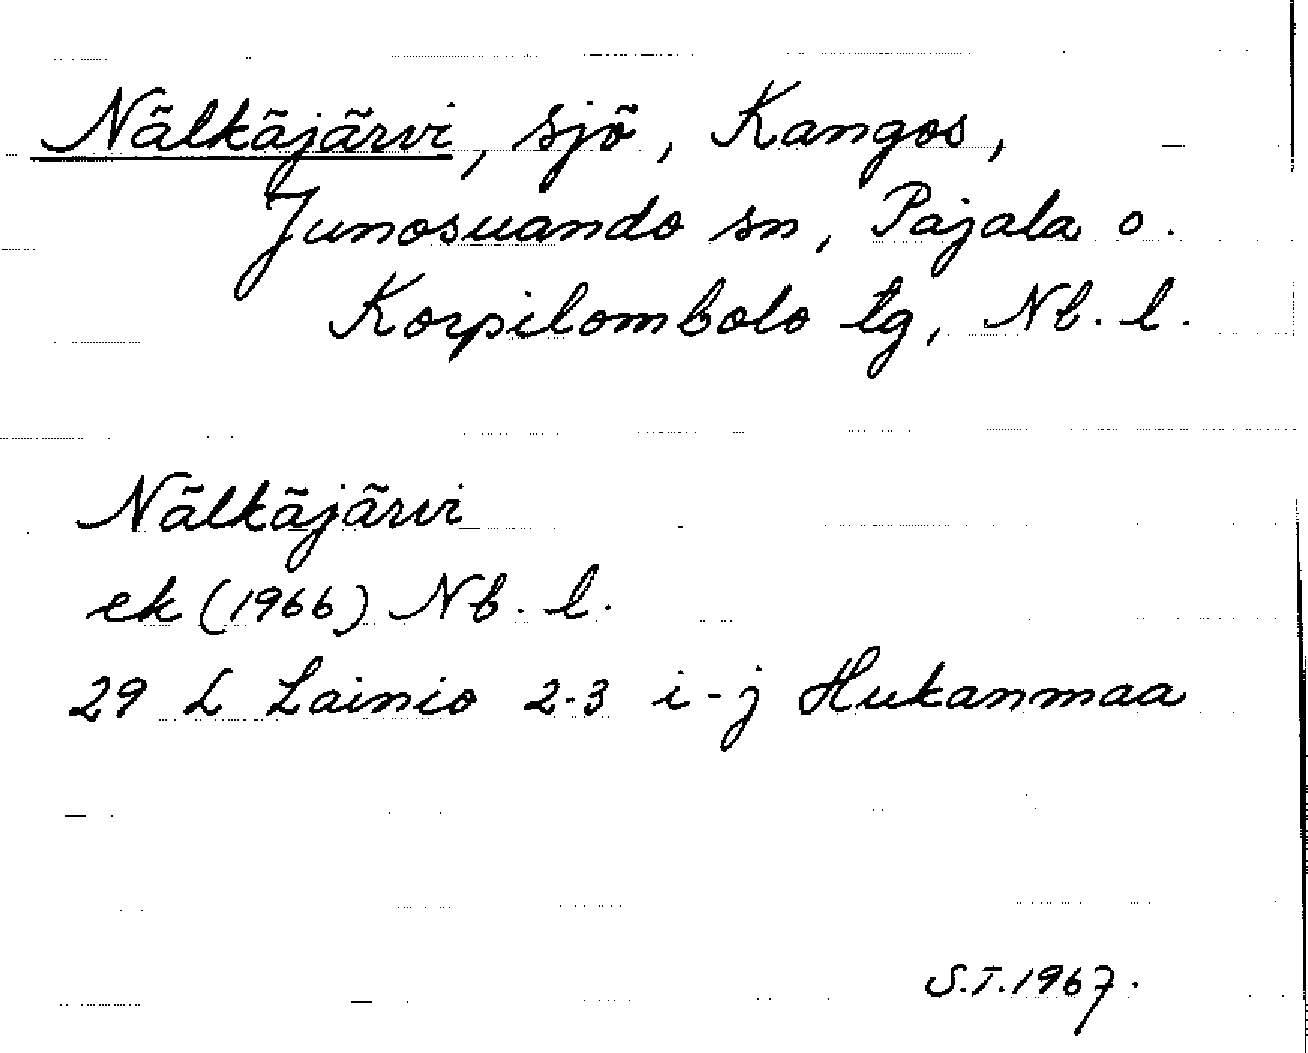 Nälkäjärvi, sjö, Kangos,
Junosuando sn, Pajala o.
Korpilombolo tg, Nb. l.
Nälkäjärvi
ek (1966) Nb. l.
29 L Lainio 2-3 i-j Hukanmaa
S.T. 1967.